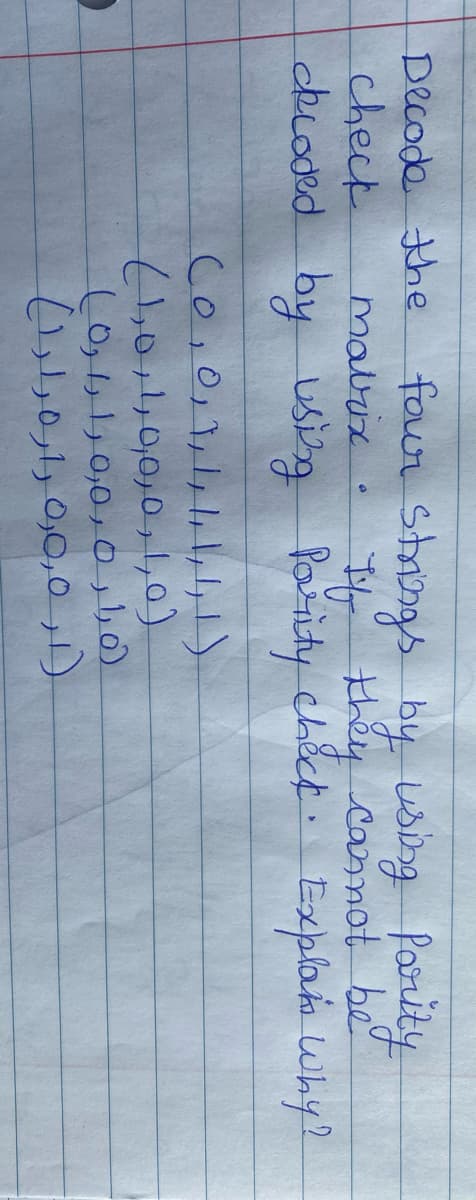 Decode the four Strings by using Parity
check matrix. If they cannot be
decoded by using Parity check. Explain Why?
(0,0,1,1,1,1,1,1)
(1,0,1,0,0,0,1,0)
(0,1,1,0,0,0,1,0)
(1,1,0,1,0,0,0,1)